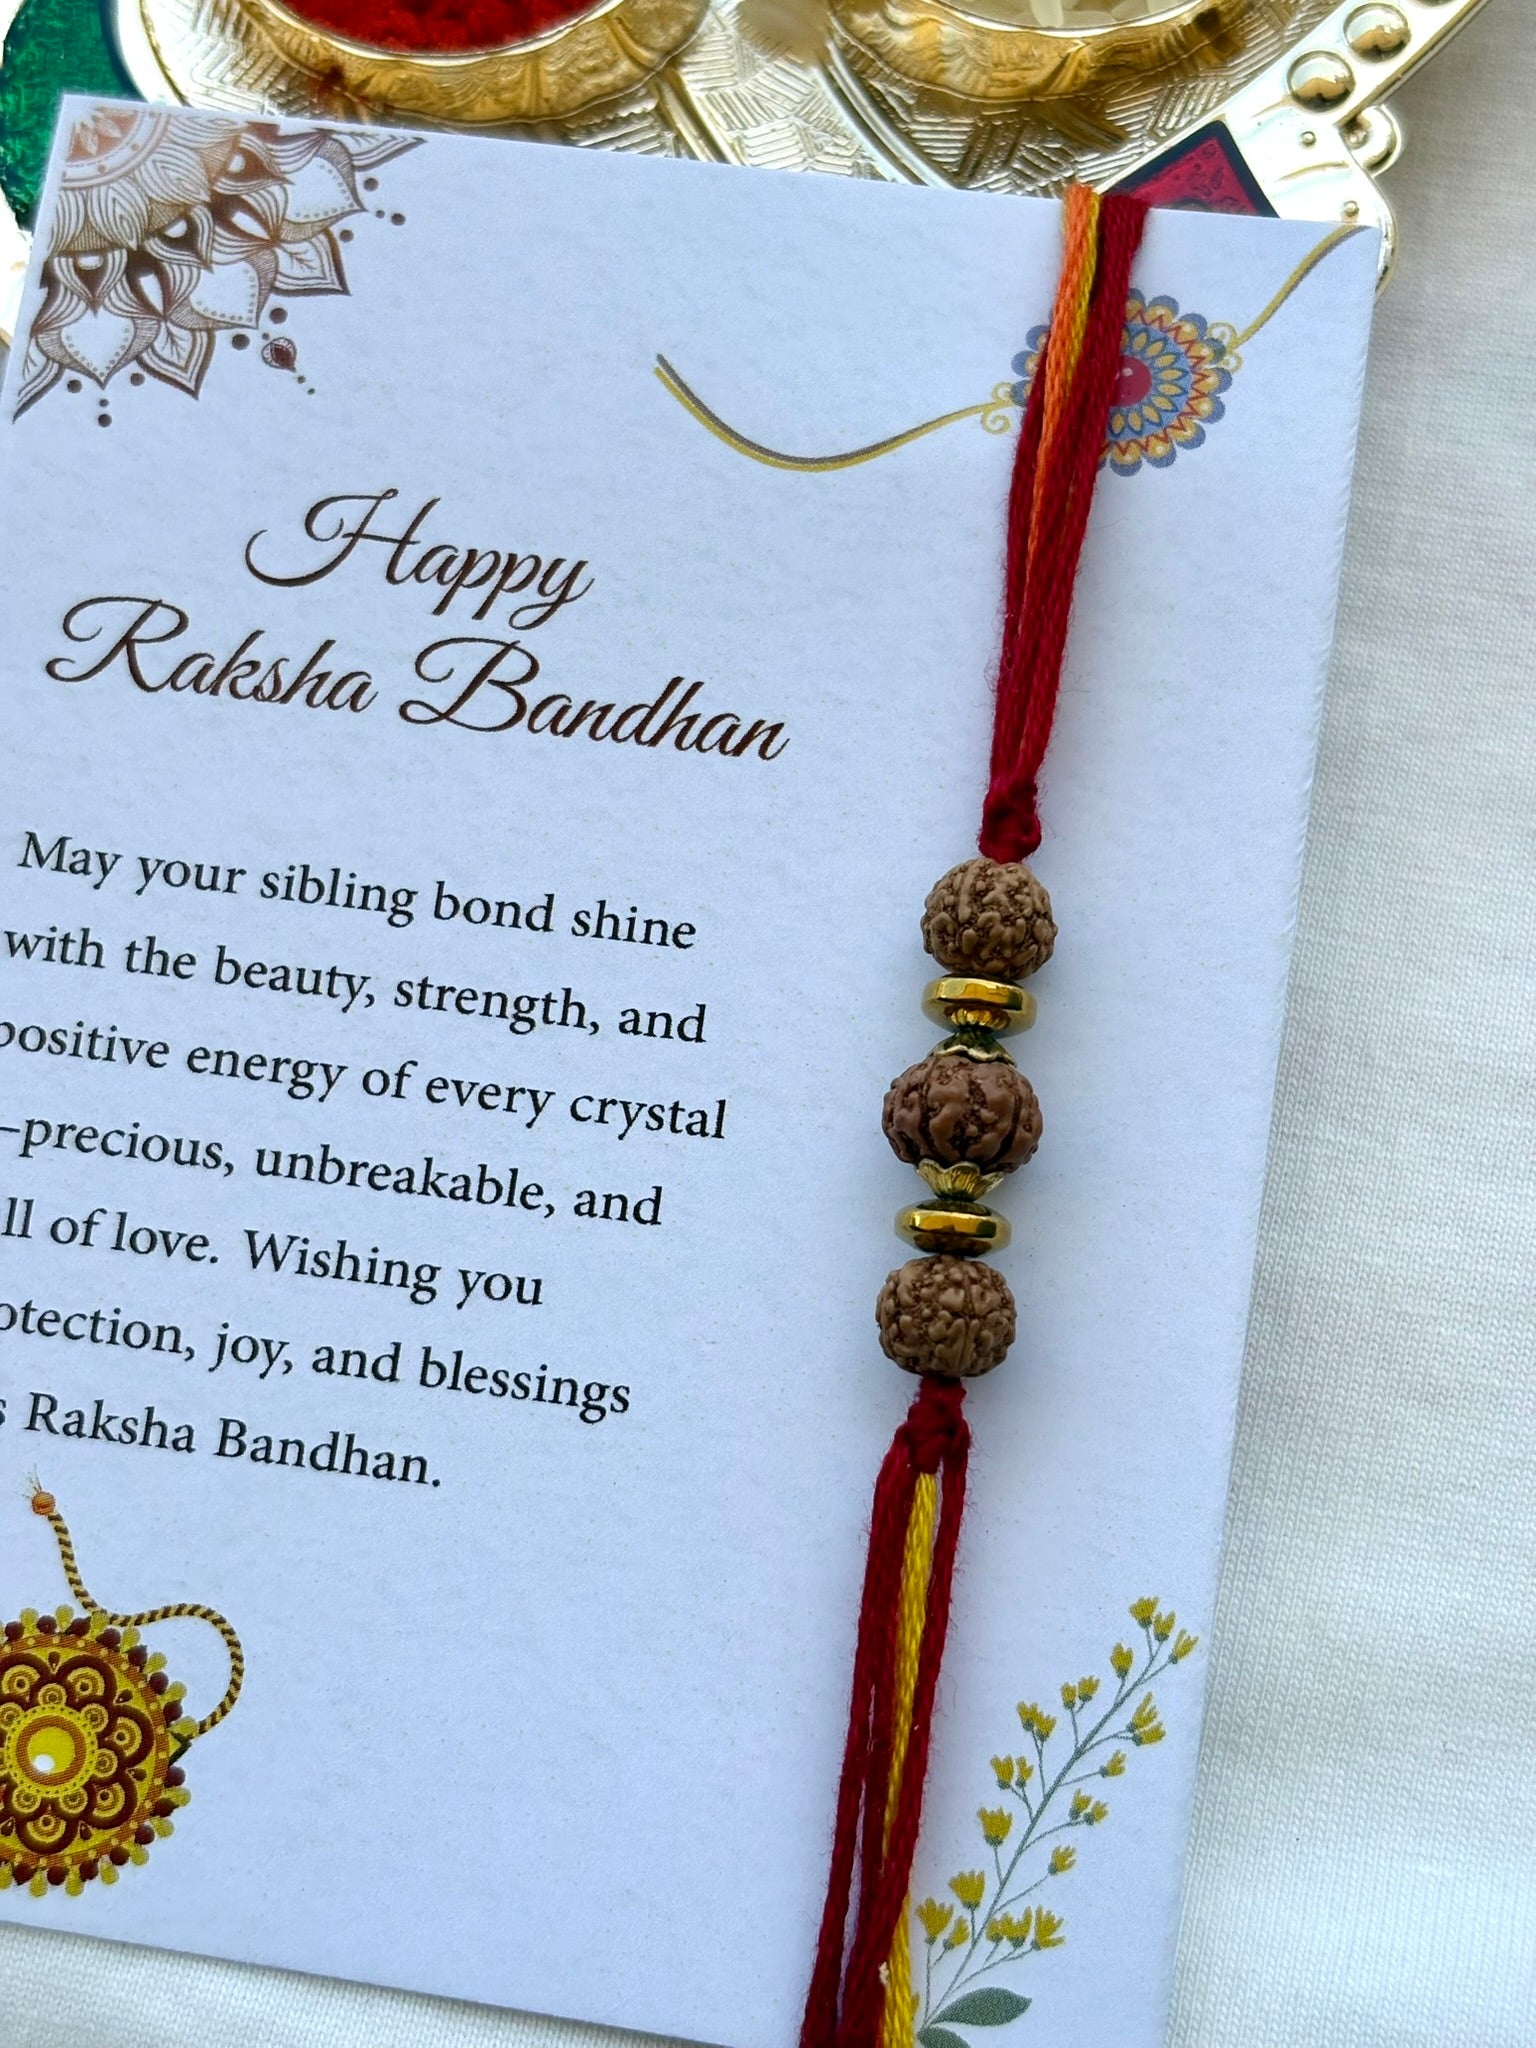 Happy
Raksha Bandhan
May your sibling bond shine
with the beauty, strength, and
positive energy of every crystal
—precious, unbreakable, and
of love. Wishing you
joy, and blessings
Raksha Bandhan.